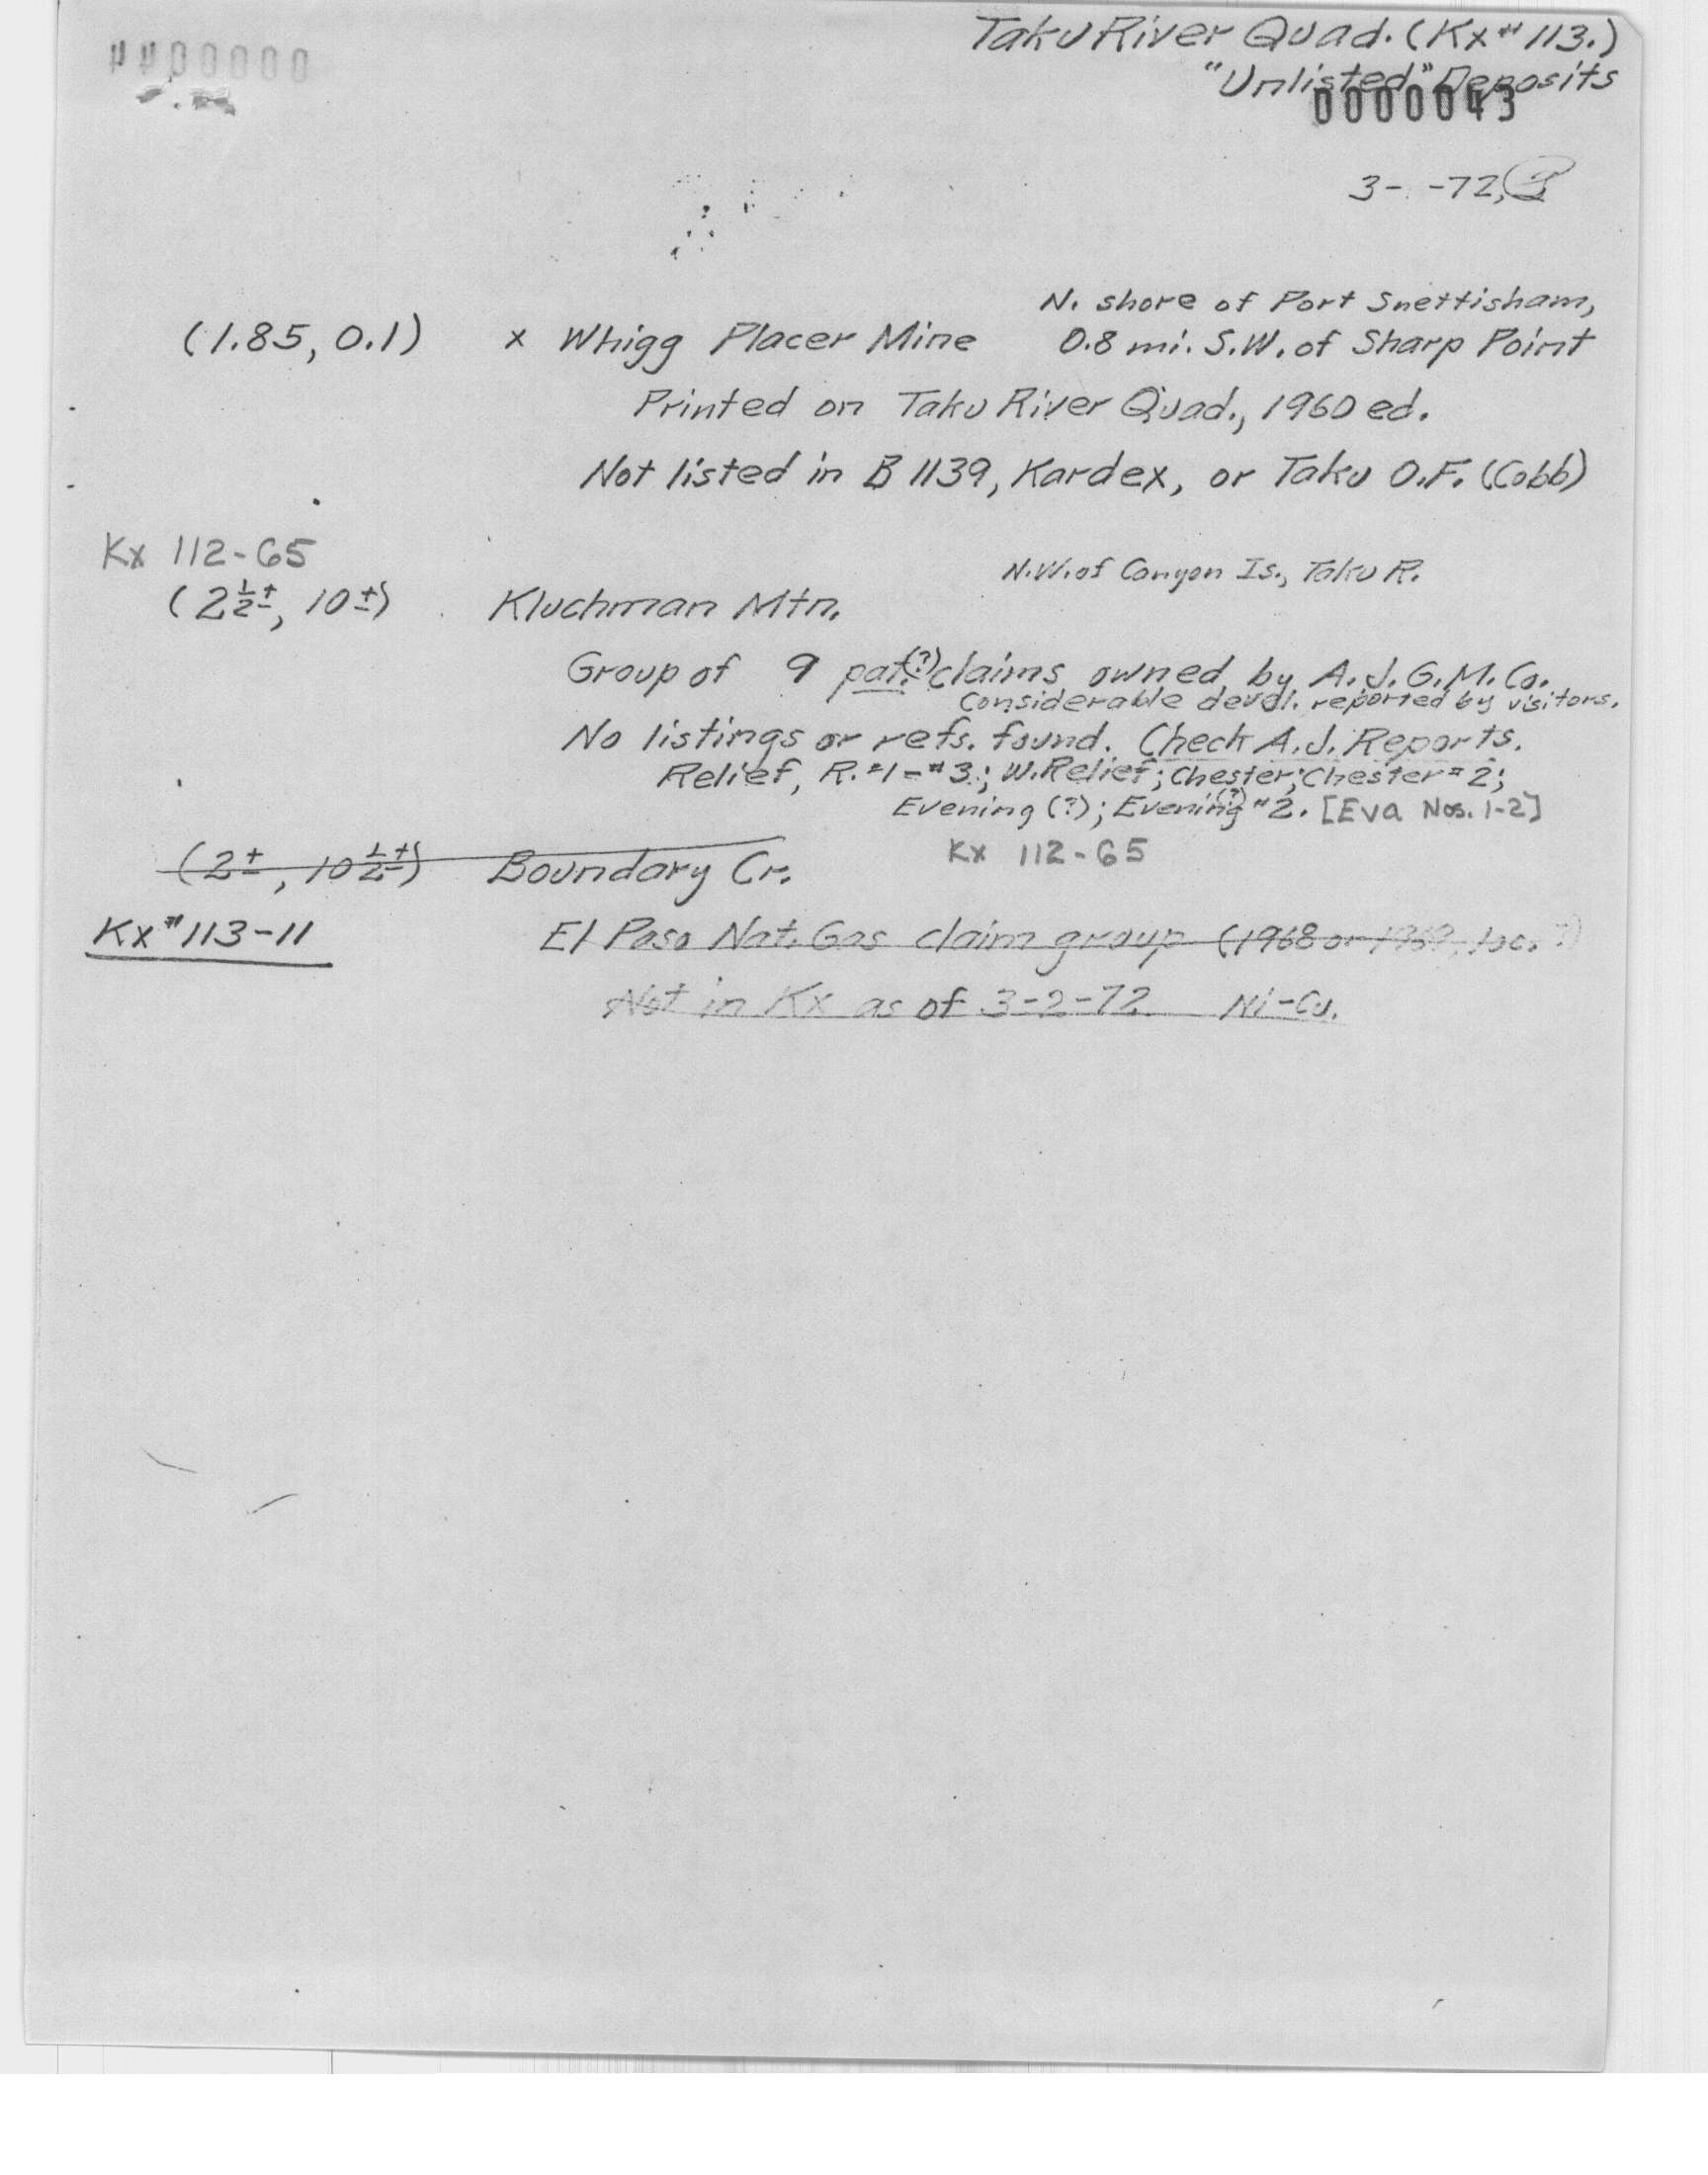 0000000
Taku River Quad. (Kx # 113.)
"Unlisted" Deposits
0000043
3- -72,
N. shore of Port Snettisham,
(1.85, 0.1) x Whigg Placer Mine 0.8 mi. S.W. of Sharp Point
Printed on Taku River Quad., 1960 ed.
Not listed in B 1139, Kardex, or Taku O.F. (Cobb)
Kx 112-65
N.W. of Canyon Is., Taku R.
(2½±, 10±) Kluchman Mtn.
Group of 9 pat.(?) claims owned by A.J.G.M.Co.
Considerable devel. reported by visitors.
No listings or refs. found. Check A.J. Reports.
Relief, R. #1-#3; W. Relief; Chester; Chester #2;
Evening (?); Evening (?) #2. [Eva Nos. 1-2]
Kx 112-65
(2±, 10½±) Boundary Cr.
Kx #113-11 El Paso Nat. Gas claim group (1968 or 1969, loc. ?)
Not in Kx as of 3-2-72. Ni-Cu.